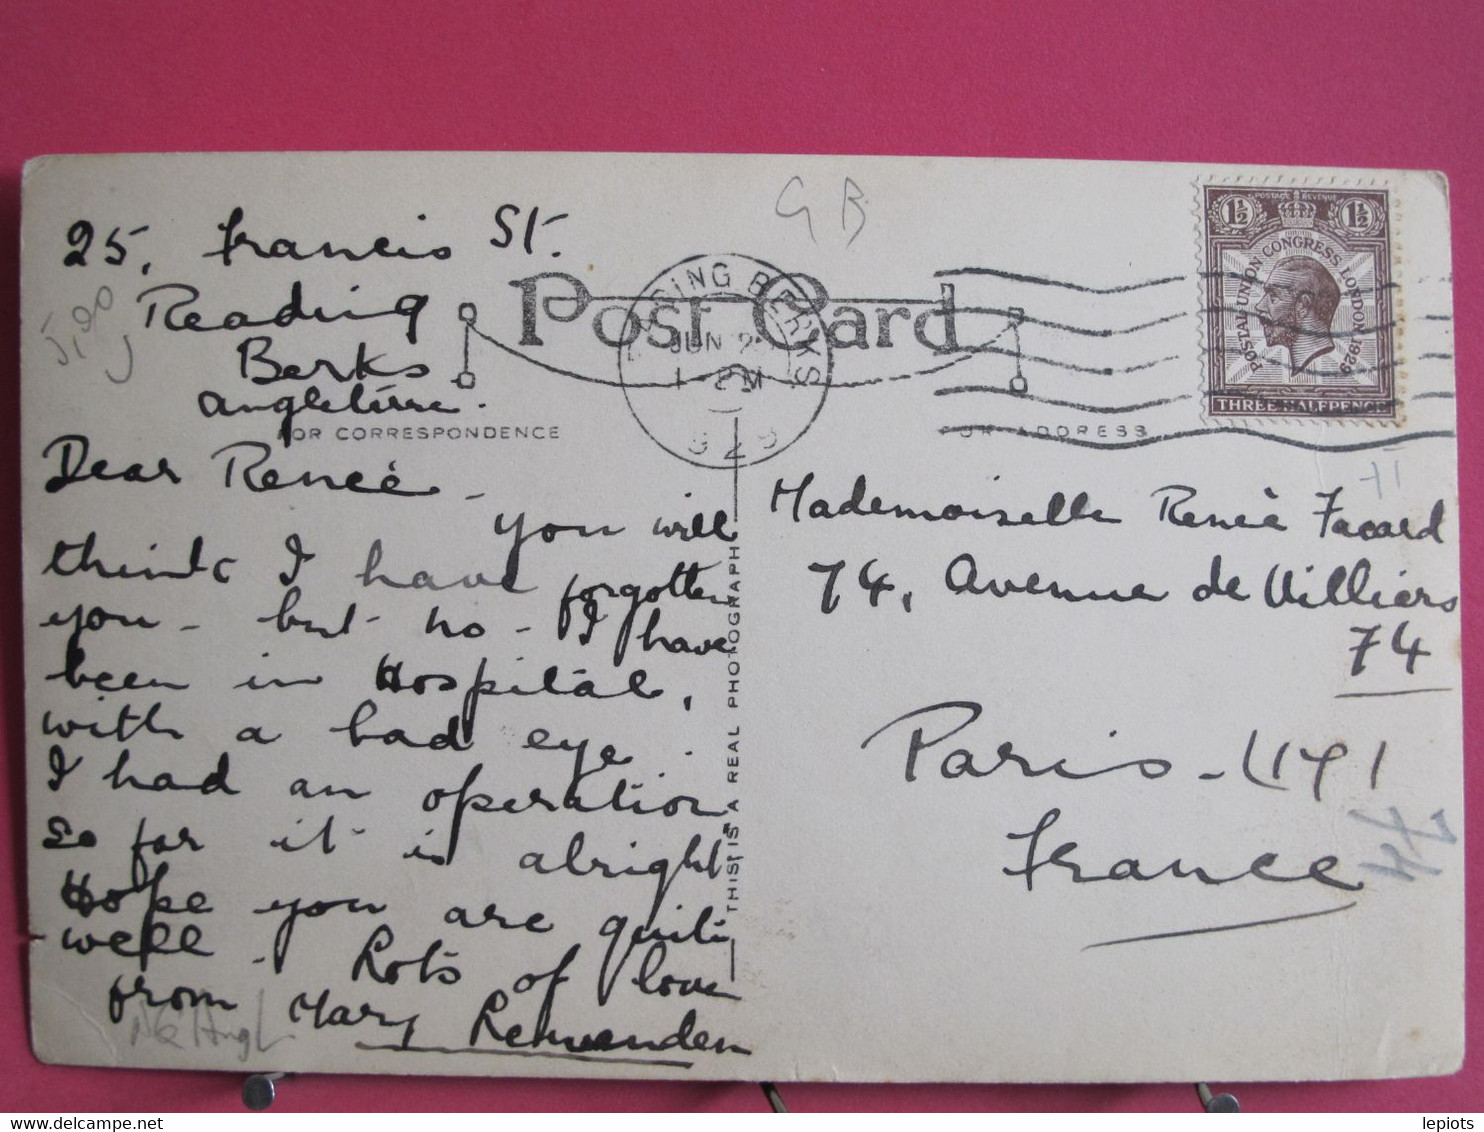 GB
25, Francis St.
Reading
Berks
Angleterre.
Post Card
READING BERKS
JUN 2
1 PM
1929
POSTAGE REVENUE
1½ 1½
POSTAL UNION CONGRESS LONDON 1929
THREE HALFPENCE
FOR CORRESPONDENCE
FOR ADDRESS
Dear Reneé -
You will
think I have forgotten
you - but no - I have
been in Hospital,
with a bad eye.
I had an operation
so far it is alright
Hope you are quite
well. Lots of love
from Mary
THIS IS A REAL PHOTOGRAPH
Mademoiselle Reneé Facard
74, Avenue de Villiers
74
Paris - (17)
France
lepiots
www.delcampe.net